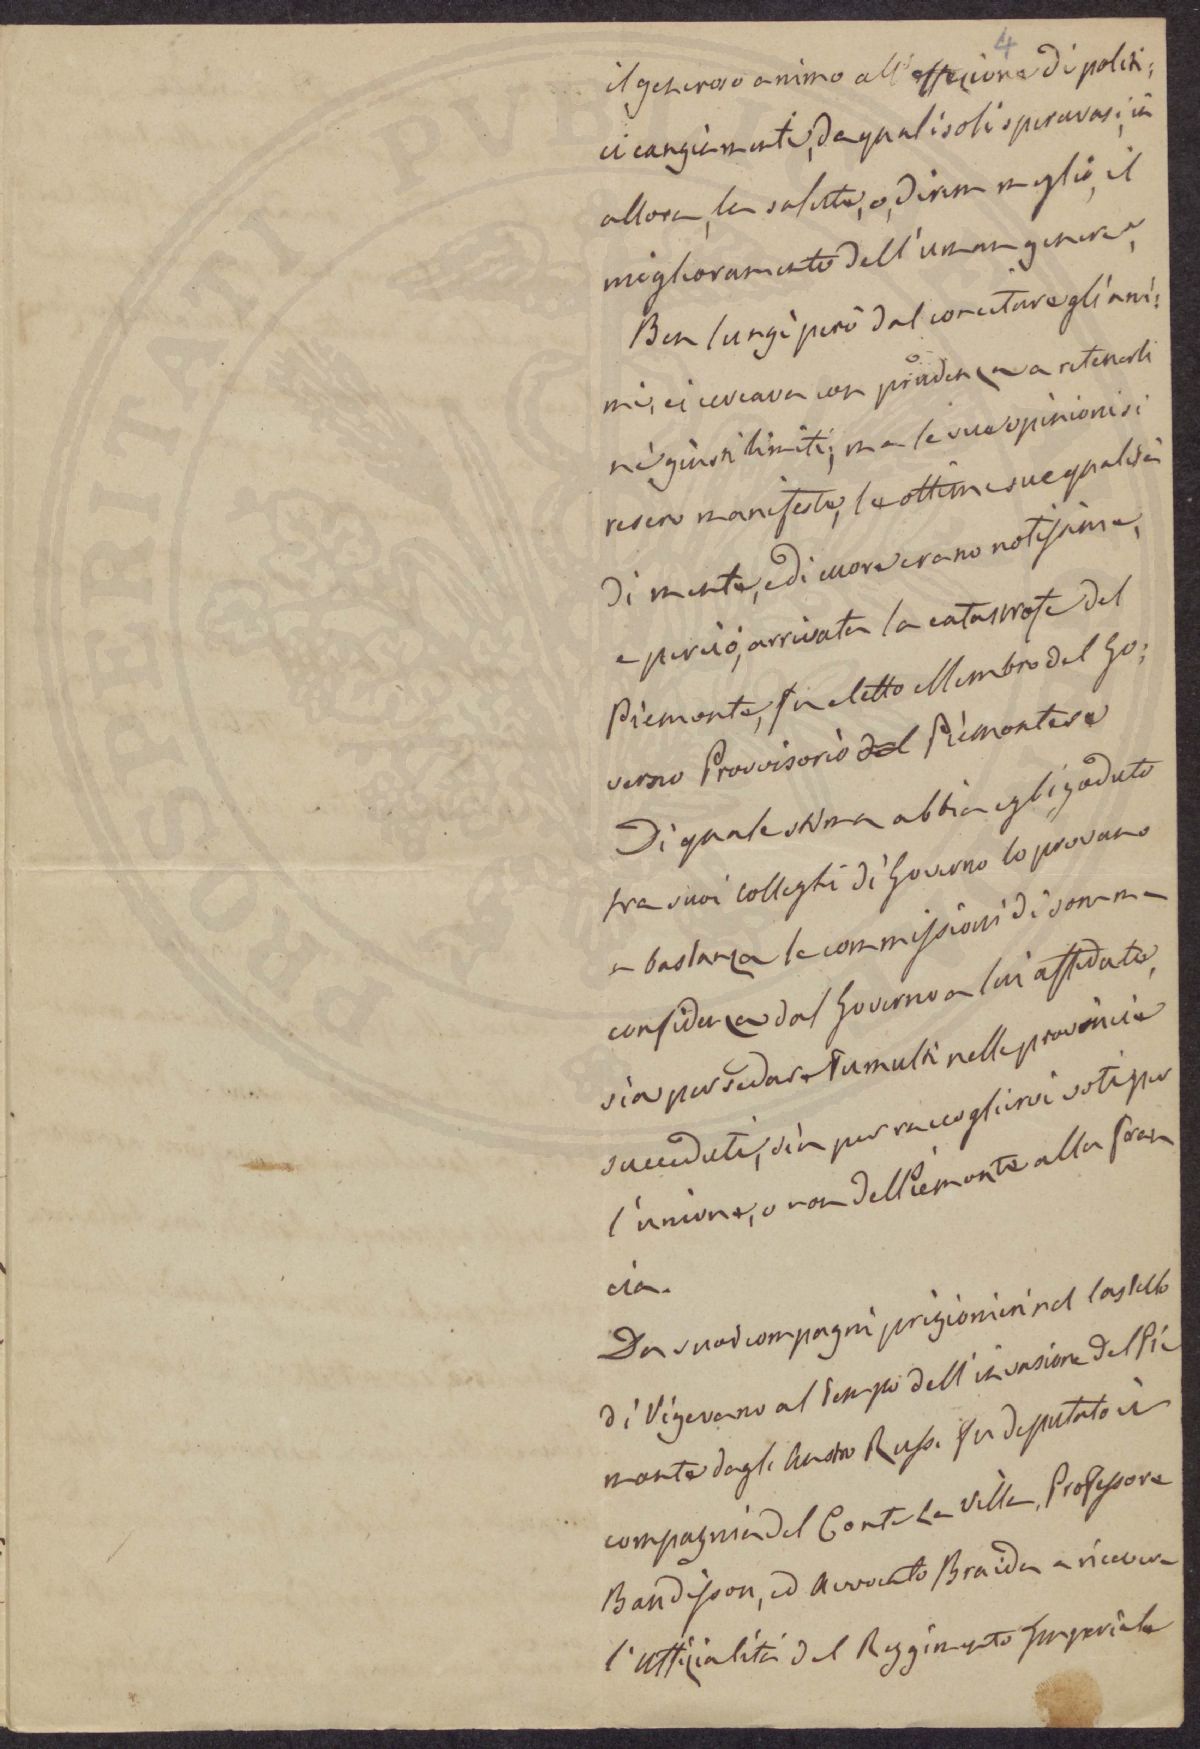 4
il generoso animo all'affezione di politi:
ci cangiamenti, da quali soli speravasi, in
allora, la salute, o, direm meglio, il
miglioramento dell'uman genere,
Ben lungi però dal concitare gli ani:
mi, ei cercava con prudenza a ritenerli
ne' giusti limiti; ma le sue opinioni si
resero manifeste, le ottime sue qualità
di mente, e di cuore erano notissime,
e perciò, arrivata la catastrofe del
Piemonte, fu eletto Membro del Go:
verno Provvisorio del Piemontese
Di quale stima abbia egli goduto
tra suoi colleghi di Governo lo provano
a bastanza le commissioni di somma
confidenza dal Governo a lui affidate,
sia per sedare tumulti nelle provincie
succeduti, sia per raccogliervi voti per
l'unione, o non del Piemonte alla Fran
cia.
Da suoi compagni prigionieri nel Castello
di Vigevano al tempo dell'invasione del Pie
monte dagli Austro Russi fu deputato in
compagnia del Conte La Villa, Professore
Baudisson, ed Avvocato Braida a ricevere
l'uffizialità del Reggimento Imperiale
PROSPERITATI PVBL